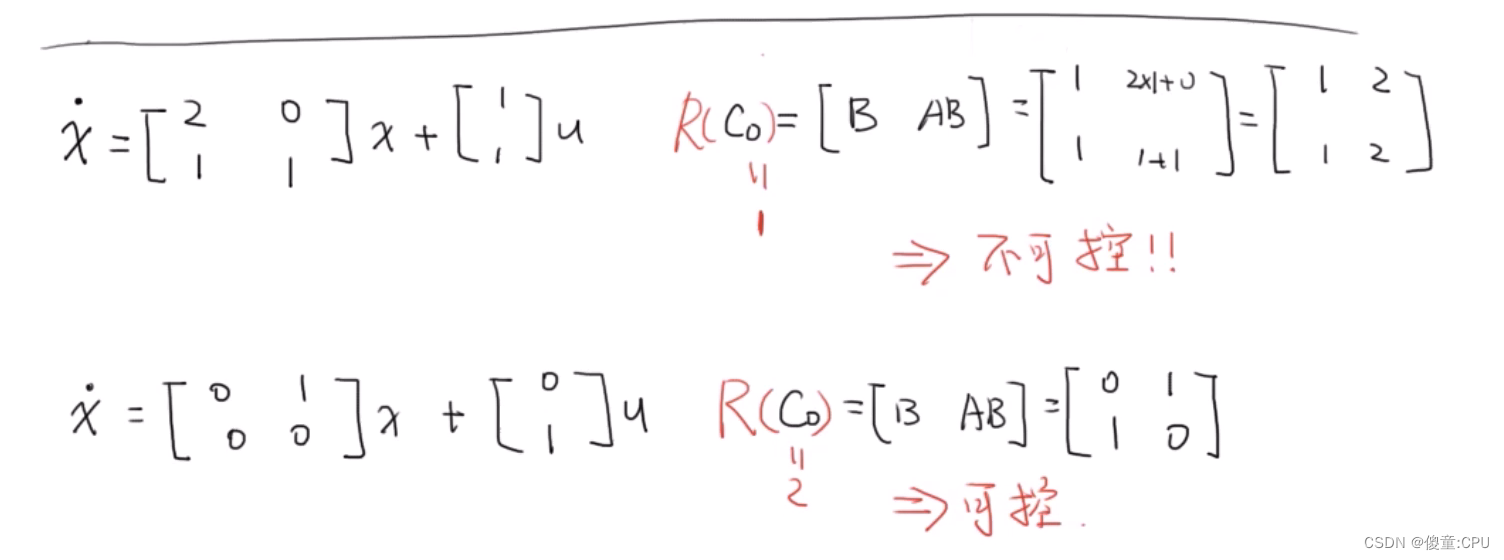 ẋ = [2 0; 1 1] x + [1; 1] u R(Co) = [B AB] = [1 2×1+0; 1 1+1] = [1 2; 1 2]
=
1
⇒ 不可控!!
ẋ = [0 1; 0 0] x + [0; 1] u R(Co) = [B AB] = [0 1; 1 0]
=
2
⇒ 可控.
CSDN @傻童:CPU